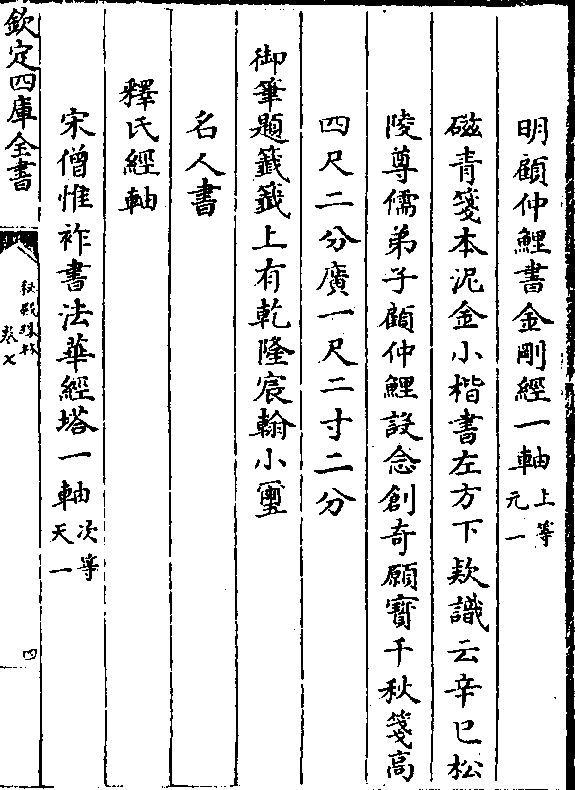 明顧仲鯉書金剛經一軸上等元一
磁青箋本泥金小楷書左方下款識云辛巳松
陵尊儒弟子顧仲鯉設念創奇願寳千秋箋高
四尺二分廣一尺二寸二分
御筆題籤籤上有乾隆宸翰小璽
名人書
釋氏經軸
宋僧惟祚書法華經塔一軸次等天一
欽定四庫全書
秘殿珠林
卷七
四